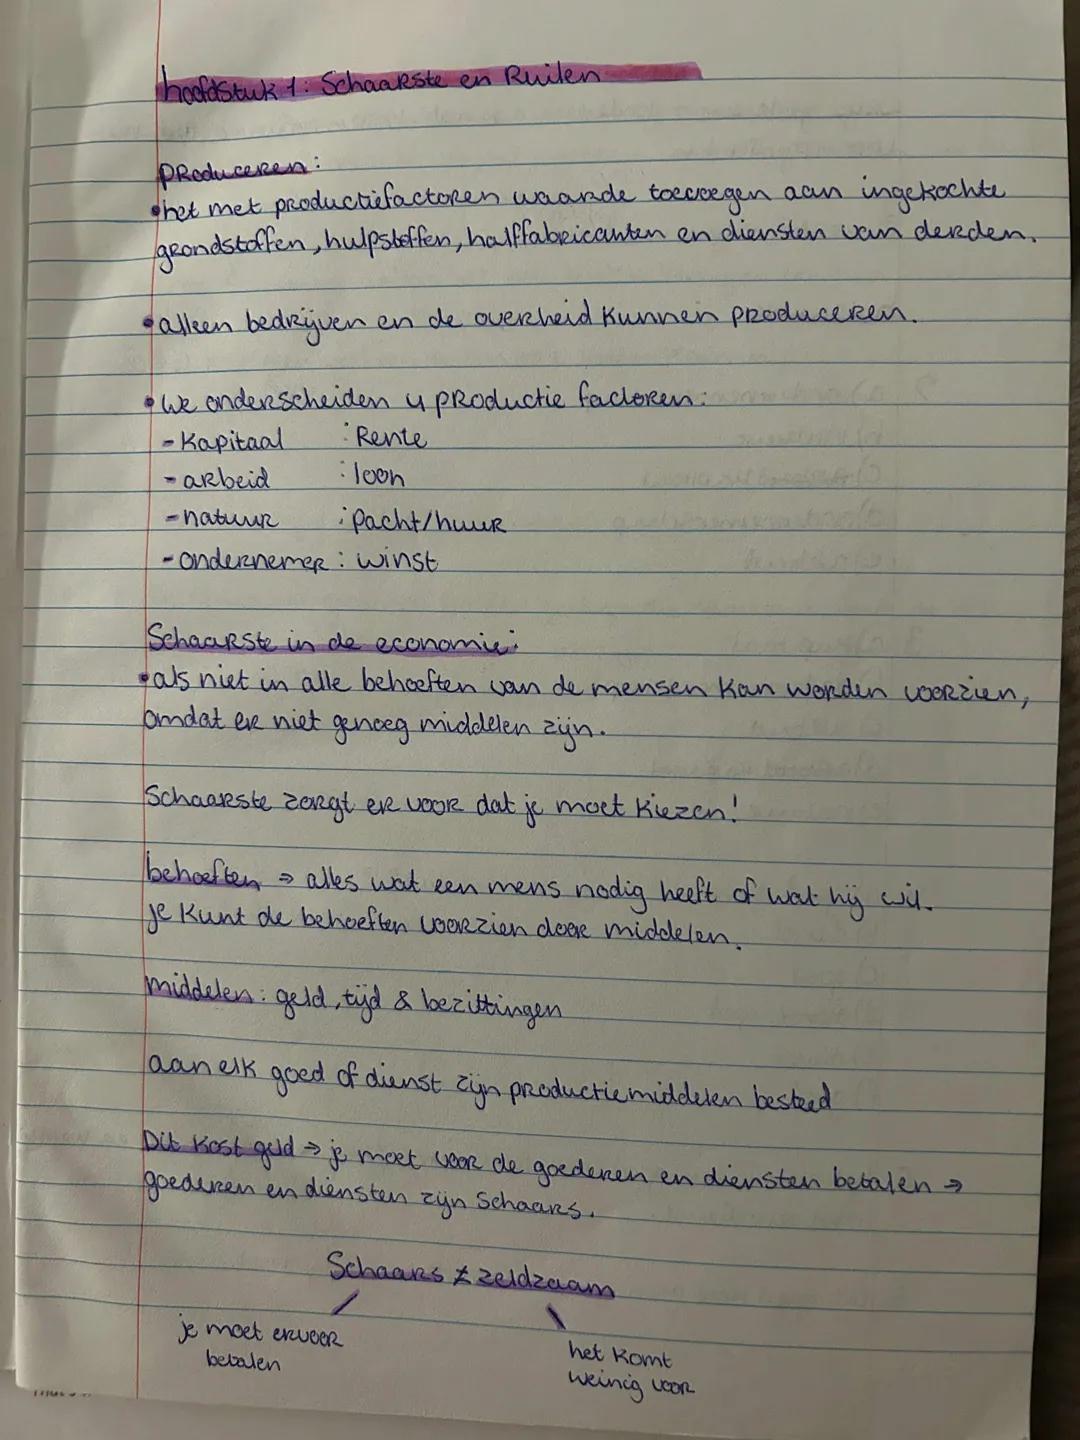 hoofdstuk 1: Schaarste en Ruilen
produceren:
•het met productiefactoren waarde toevoegen aan ingekochte
grondstoffen, hulpstoffen, halffabricanten en diensten van derden.
•alleen bedrijven en de overheid kunnen produceren.
•We onderscheiden 4 productie factoren:
-Kapitaal : Rente
-arbeid : loon
-natuur : Pacht/huur
-ondernemer : winst
Schaarste in de economie:
•als niet in alle behoeften van de mensen kan worden voorzien,
omdat er niet genoeg middelen zijn.
Schaarste zorgt er voor dat je moet kiezen!
behoeften ⇒ alles wat een mens nodig heeft of wat hij wil.
je kunt de behoeften voorzien door middelen.
middelen: geld, tijd & bezittingen
aan elk goed of dienst zijn productiemiddelen besteed
Dit kost geld → je moet voor de goederen en diensten betalen →
goederen en diensten zijn schaars.
Schaars ≠ zeldzaam
je moet ervoor
betalen
het komt
weinig voor